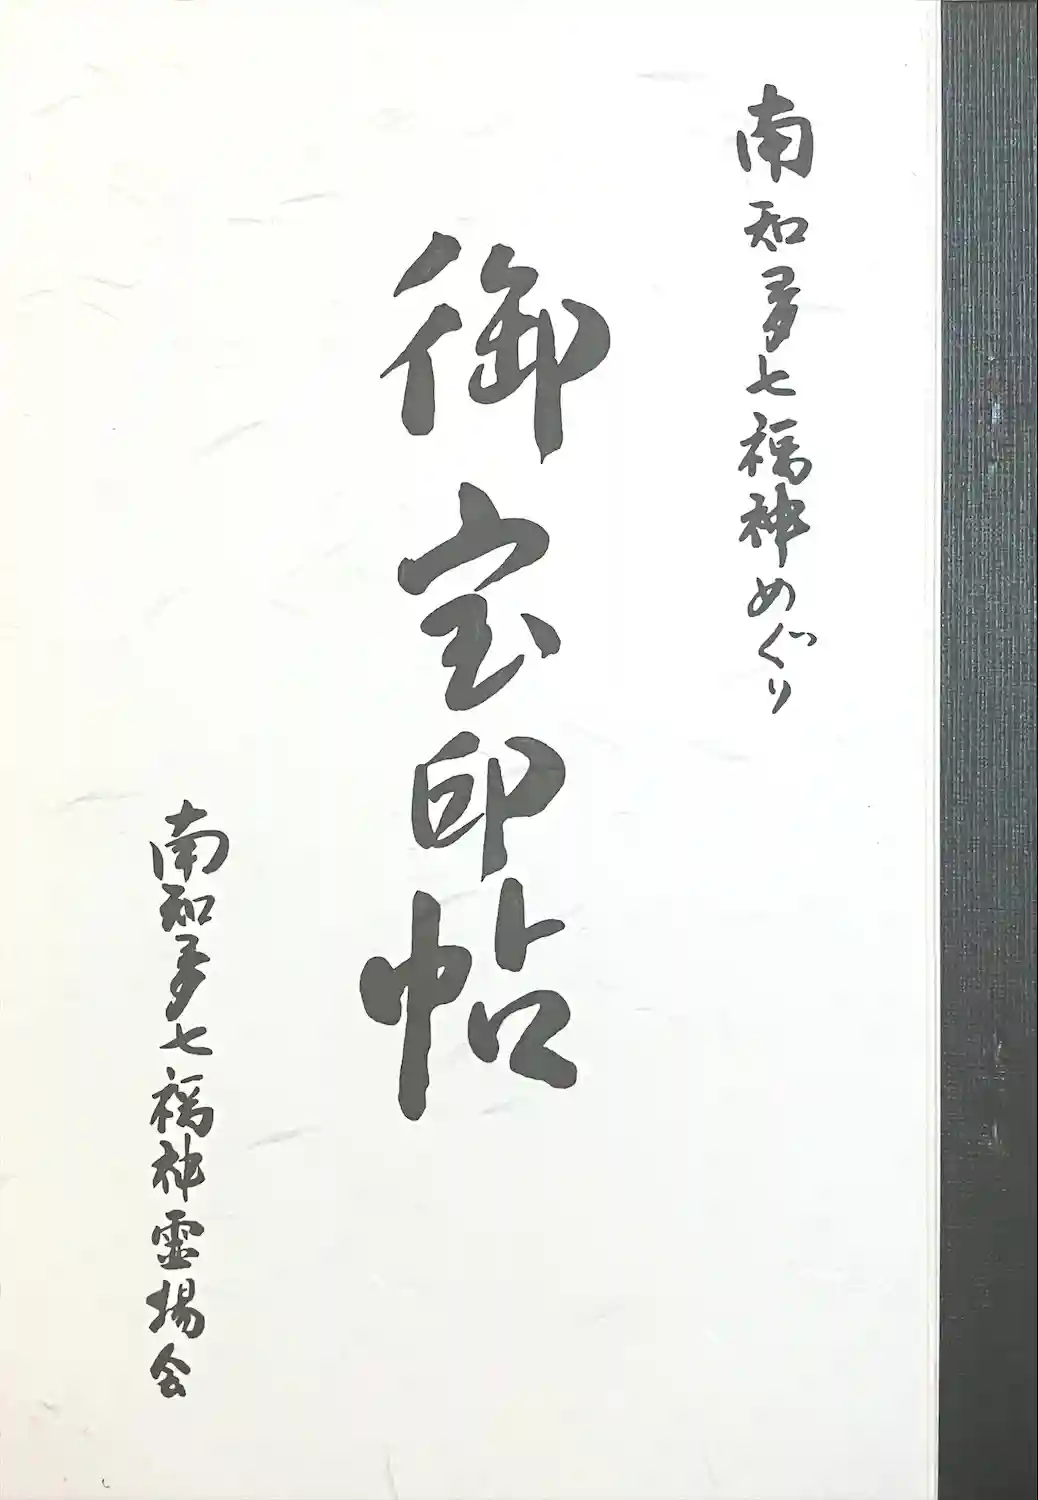 南知多七福神めぐり
御宝印帖
南知多七福神霊場会